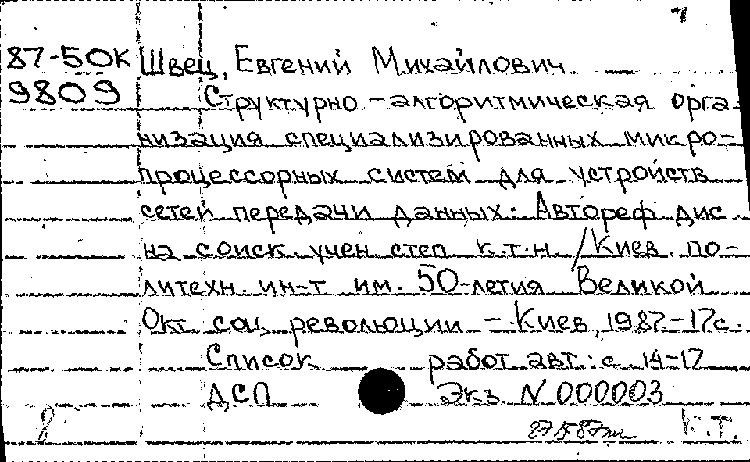 87-50К Швец, Евгений Михайлович
9809 Структурно-алгоритмическая орга-
низация специализированных микро-
процессорных систем для устройств
сетей передачи данных: Автореф дис
на соиск. учен степ к.т.н. /Киев. по-
литехн. ин-т им. 50-летия Великой
Окт соц революции - Киев, 1987-17с.
Список работ авт.: с 14-17
ДСП Экз N 000003
К.Т.